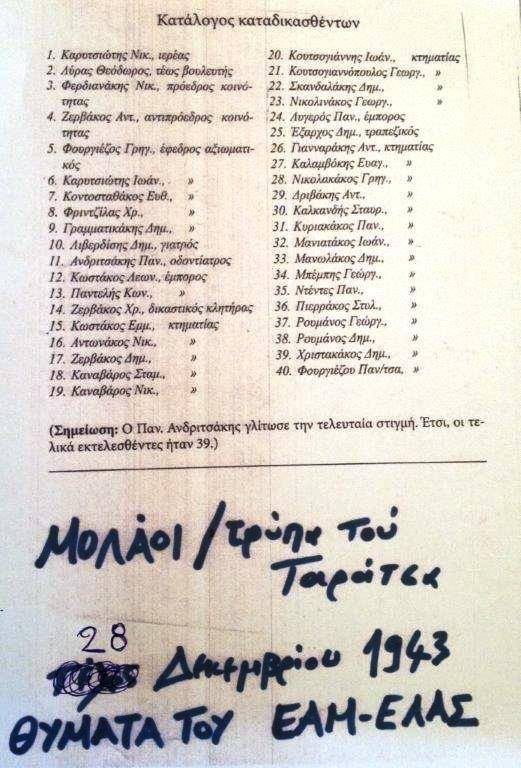 Κατάλογος καταδικασθέντων
1. Καρυτσιώτης Νικ., ιερέας
2. Λύρας Θεόδωρος, τέως βουλευτής
3. Φερδιανάκης Νικ., πρόεδρος κοινό-
τητας
4. Ζερβάκος Αντ., αντιπρόεδρος κοινό-
τητας
5. Φουργιέζος Γρηγ., έφεδρος αξιωματι-
κός
6. Καρυτσιώτης Ιωάν., »
7. Κοντοσταθάκος Ευθ., »
8. Φριντζίλας Χρ., »
9. Γραμματικάκης Δημ., »
10. Λιβερδίσης Δημ., γιατρός
11. Ανδριτσάκης Παν., οδοντίατρος
12. Κωστάκος Λεων., έμπορος
13. Παντελής Κων., »
14. Ζερβάκος Χρ., δικαστικός κλητήρας
15. Κωστάκος Εμμ., κτηματίας
16. Αντωνάκος Νικ., »
17. Ζερβάκος Δημ., »
18. Καναβάρος Σταμ., »
19. Καναβάρος Νικ., »
20. Κουτσογιάννης Ιωάν., κτηματίας
21. Κουτσογιαννόπουλος Γεωργ., »
22. Σκανδαλάκης Δημ., »
23. Νικολινάκος Γεωργ., »
24. Λυγερός Παν., έμπορος
25. Έξαρχος Δημ., τραπεζικός
26. Γιανναράκης Αντ., κτηματίας
27. Καλαμβόκης Ευαγ., »
28. Νικολακάκος Γρηγ., »
29. Δριβάκης Αντ., »
30. Καλκανδής Σταυρ., »
31. Κυριακάκος Παν., »
32. Μανιατάκος Ιωάν., »
33. Μανωλάκος Δημ., »
34. Μπέμπης Γεώργ., »
35. Ντέντες Παν., »
36. Πιερράκος Στυλ., »
37. Ρουμάνος Γεώργ., »
38. Ρουμάνος Δημ., »
39. Χριστακάκος Δημ., »
40. Φουργιέζου Παν/τσα, »
(Σημείωση: Ο Παν. Ανδριτσάκης γλίτωσε την τελευταία στιγμή. Έτσι, οι τε-
λικά εκτελεσθέντες ήταν 39.)
ΜΟΛΑΟΙ / τρύπα τού
Ταράτσα
28
Δεκεμβρίου 1943
ΘΥΜΑΤΑ ΤΟΥ ΕΑΜ-ΕΛΑΣ